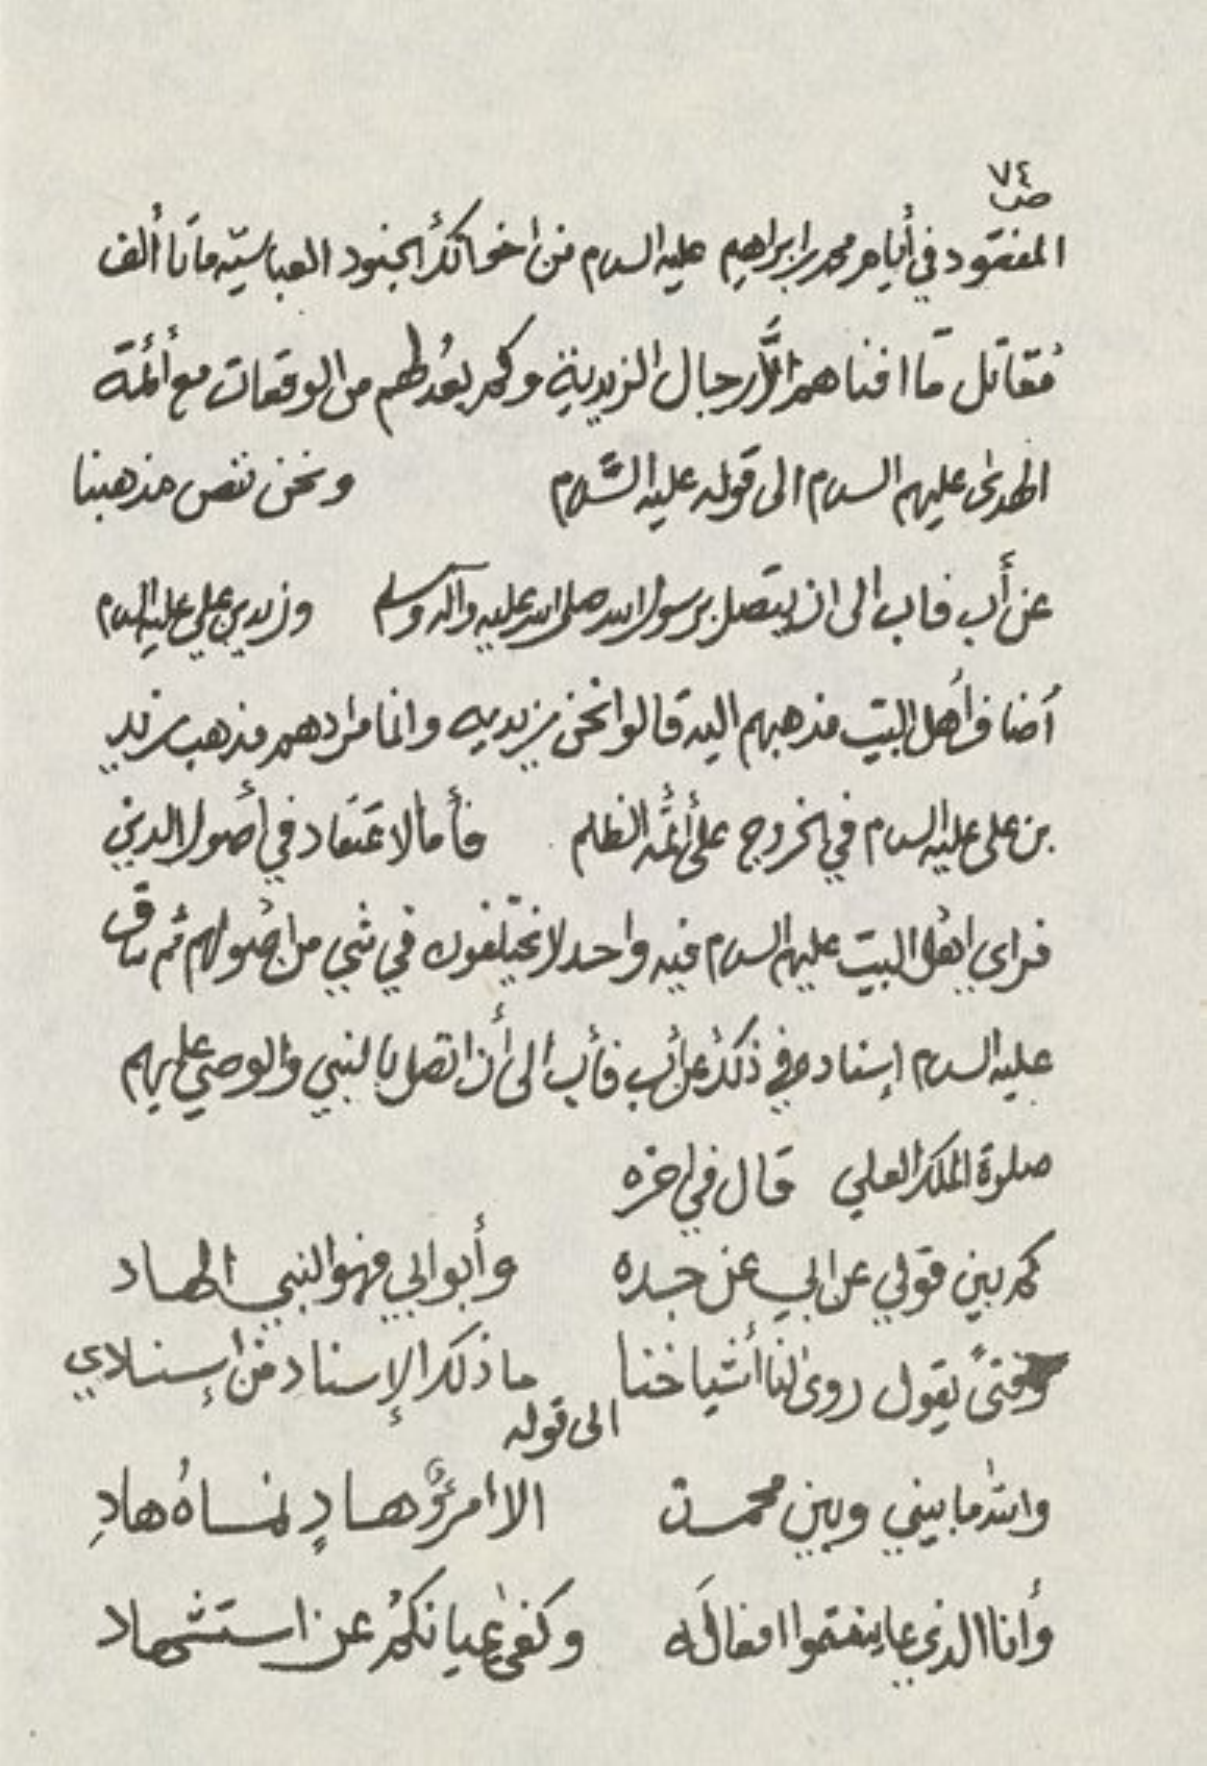 ٧٤
ص
المفقود في أيام محمد بن ابراهيم عليه السلام فمن اخوانك الجنود العباسيّه مأتا ألف
مُقاتل ما افناهم إلَّا رجال الزيدية وكم بعُد لهم من الوقعات مع أئمة
الهدى عليهم السلام الى قوله عليه السَّلام ونحن ننص مذهبنا
عن أب فاب الى ان يتصل برسول الله صلى الله عليه وآله وسلم وزيد بن علي عليه السلام
أضاف أهل البيت مذهبهم اليه قالوا نحن زيديه وانما مرادهم مذهب زيد
بن علي عليه السلام في الخروج على أئمة الظلم فأما الاعتقاد في أصول الدين
فراي اهل البيت عليهم السلام فيه واحد لا يختلفون في شي من اصولهم ثم ساق
عليه السلام إسناده في ذلك عن أب فأب الى أن اتصل بالنبي والوصي عليهم
صلوة الملك العلي قال في اخره
كم بين قولي عن ابي عن جده وأبو ابي فهو النبي الهاد
وفتىً يقول روى لنا أشياخنا ما ذلك الإسناد من إسنادي
الى قوله
والله ما بيني وبين محمد الا امرؤٌ هادٍ نماهُ هادِ
وأنا الذي عاينتموا افعالَه وكفى عيانكمُ عن استشهاد